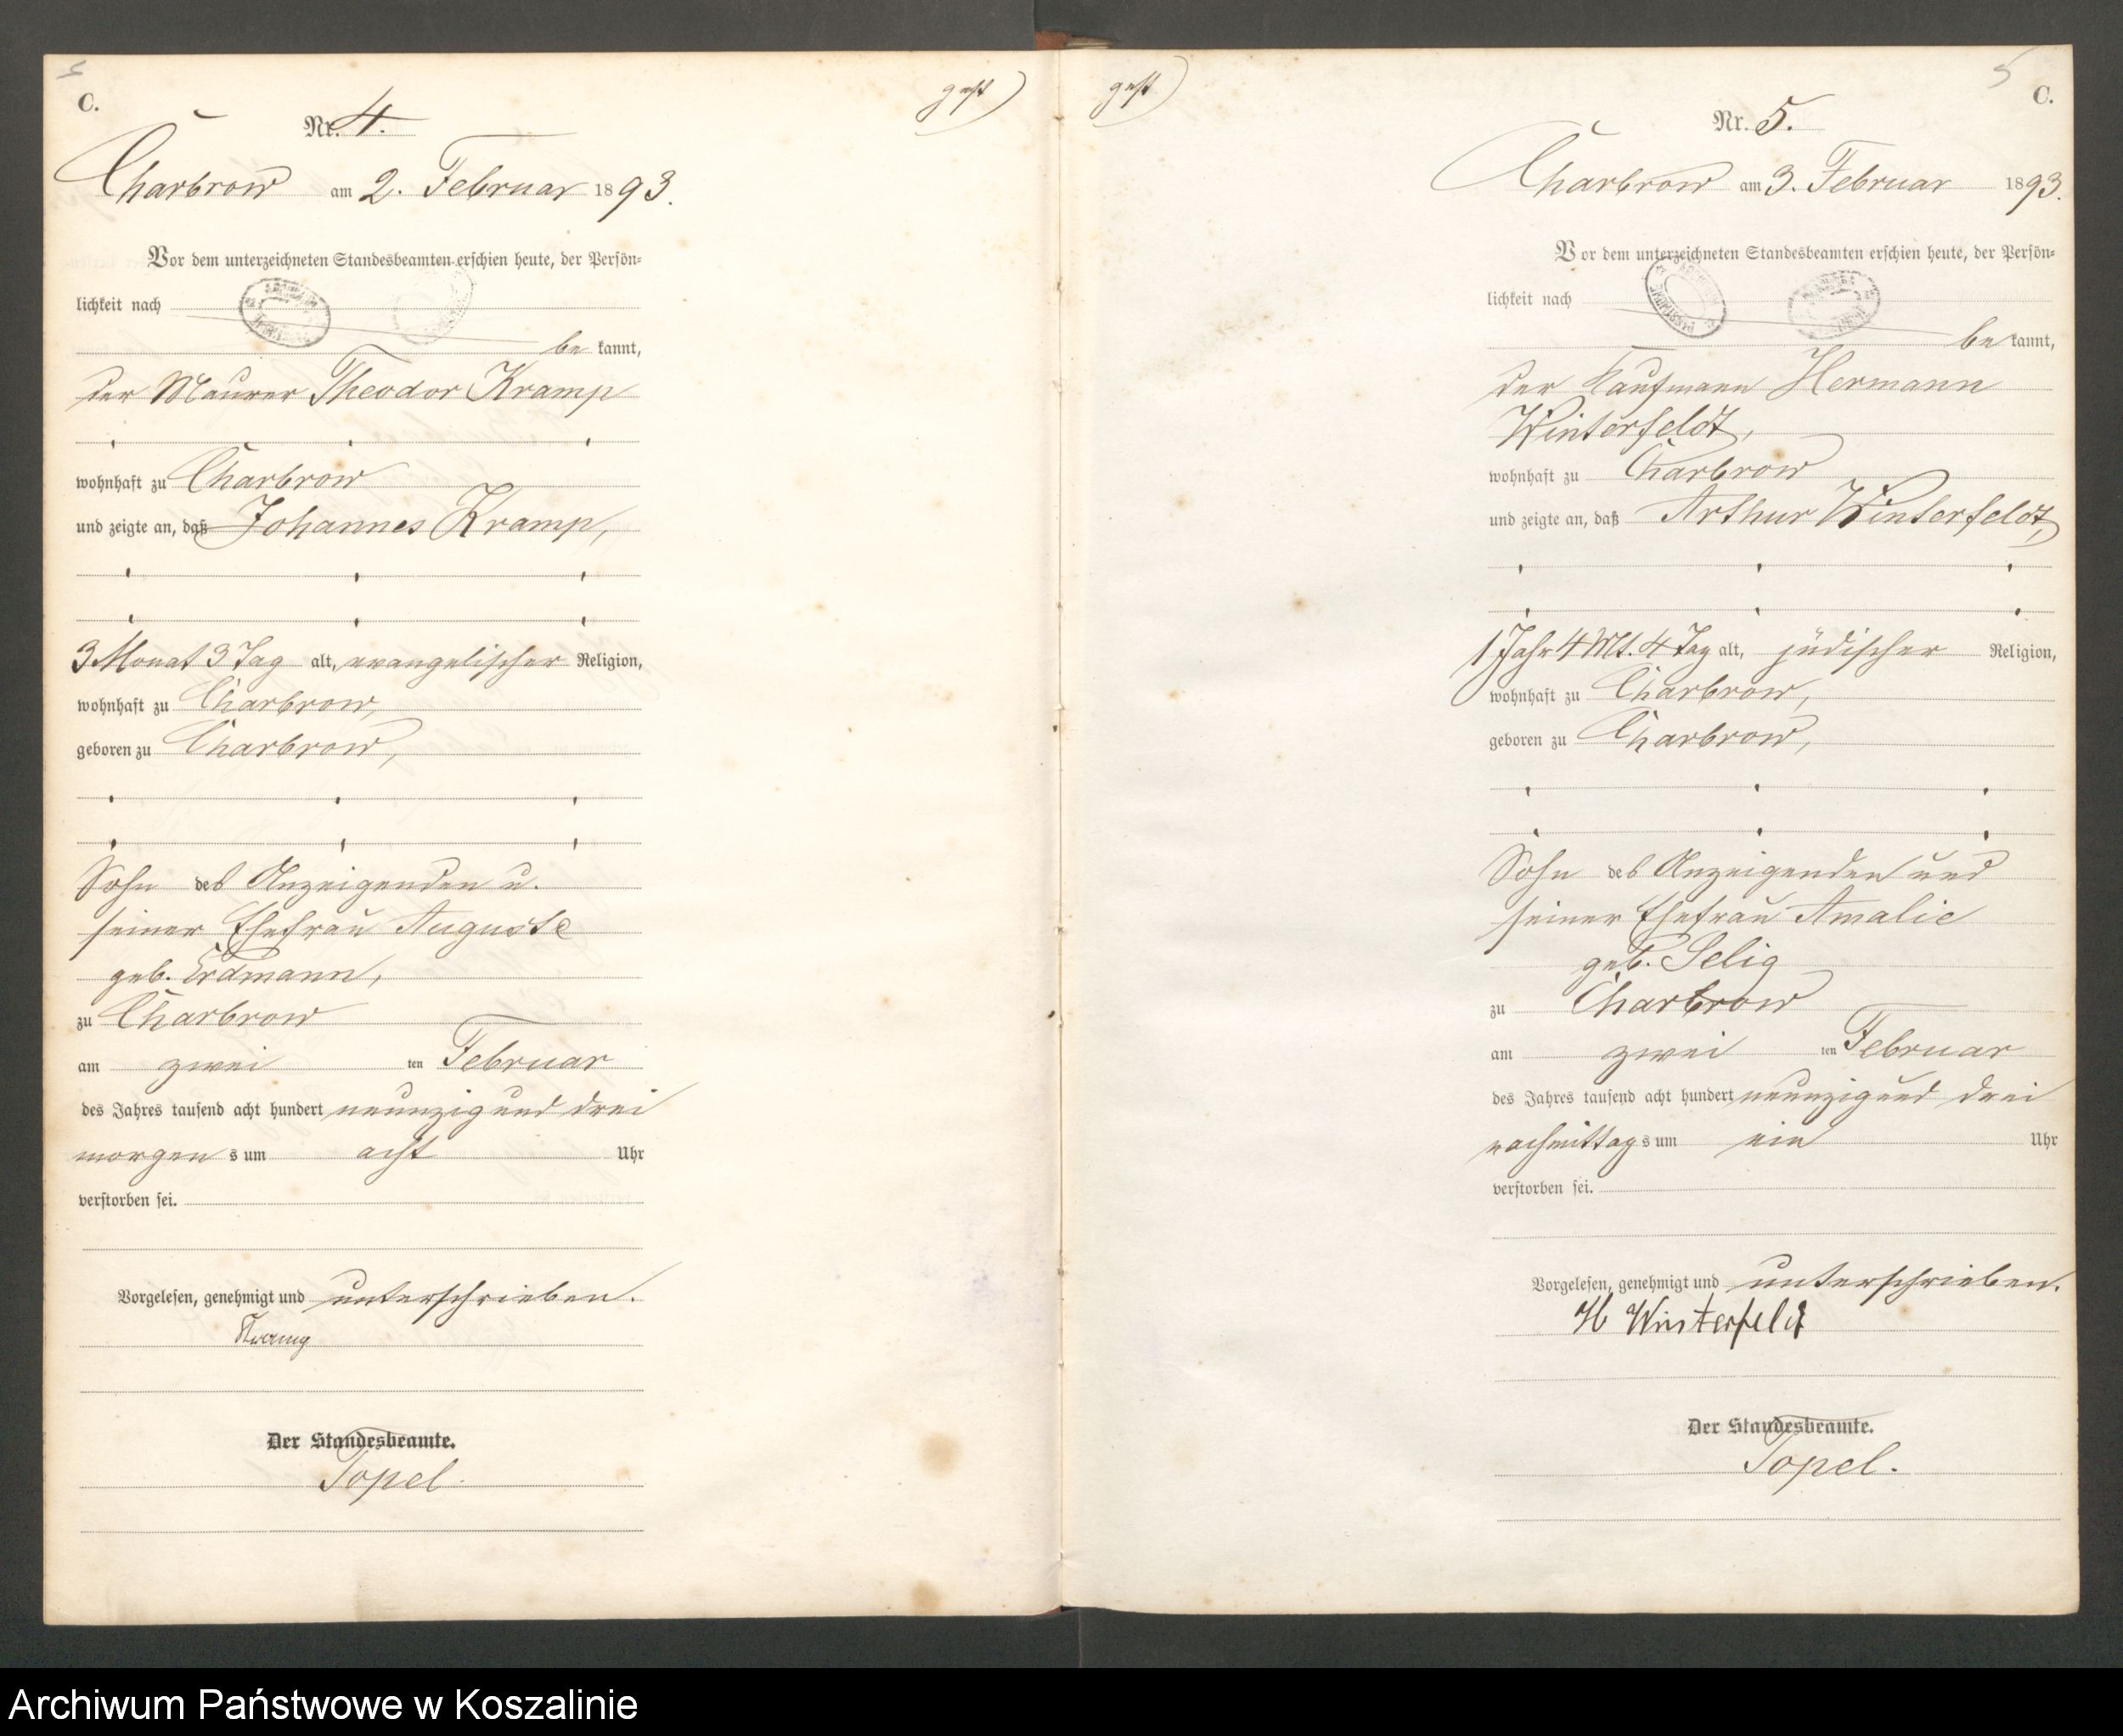 C.
Nr. 4.
Charbrow am 2. Februar 1893.
Vor dem unterzeichneten Standesbeamten erschien heute, der Persön-
lichkeit nach
be kannt,
der Maurer Theodor Kramp
wohnhaft zu Charbrow
und zeigte an, daß Johannes Kramp,
3 Monat 3 Tag alt, evangelischer Religion,
wohnhaft zu Charbrow,
geboren zu Charbrow,
Sohn des Anzeigenden u.
seiner Ehefrau Auguste
geb. Erdmann,
zu Charbrow
am zwei ten Februar
des Jahres tausend acht hundert neunzig und drei
morgen s um acht Uhr
verstorben sei.
Vorgelesen, genehmigt und unterschrieben.
Kramp
Der Standesbeamte.
Topel.
5
C.
Nr. 5.
Charbrow am 3. Februar 1893.
Vor dem unterzeichneten Standesbeamten erschien heute, der Persön-
lichkeit nach
be kannt,
der Kaufmann Hermann
Winterfeldt,
wohnhaft zu Charbrow
und zeigte an, daß Arthur Winterfeldt,
1 Jahr 4 Mt. 4 Tag alt, jüdischer Religion,
wohnhaft zu Charbrow,
geboren zu Charbrow,
Sohn des Anzeigenden und
seiner Ehefrau Amalie
geb. Selig
zu Charbrow
am zwei ten Februar
des Jahres tausend acht hundert neunzig und drei
nachmittag s um ein Uhr
verstorben sei.
Vorgelesen, genehmigt und unterschrieben.
H Winterfeldt
Der Standesbeamte.
Topel.
Archiwum Państwowe w Koszalinie